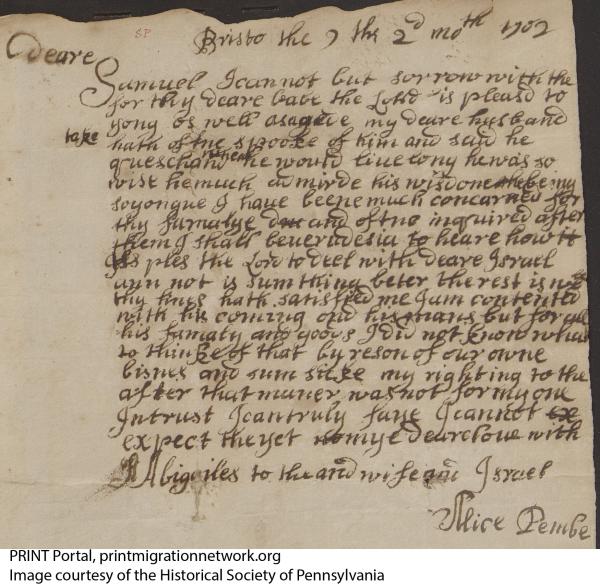 SP
Bristo the 9 th 2d moth 1702
deare
Samuel I cannot but sorrow with the
for thy deare babe the Lord is pleasd to
take yong as well as agede my deare husband
hath oftne spooke of him and said he
queschand whether he would live long he was so
wise he much admirde his wisdome being
so yongue I have beene much concarned for
thy famalye and oftne inquired after
them I shall be to heare how it
ples the Lord to deel with deare Israel
ann not is sum thing beter the rest is well
thy lines hath satisfied me I am contented
with his coming and his mans but for all
his famaly and goods I did not know what
to thinke of that by reson of our owne
bisnes and sum sicke my righting to the
after that maner was not for my one
Intrust I can truly saye I cannot
expect the yet mye deare love with
Abigailes to the and wife and Israel
Alice Pembe
PRINT Portal, printmigrationnetwork.org
Image courtesy of the Historical Society of Pennsylvania